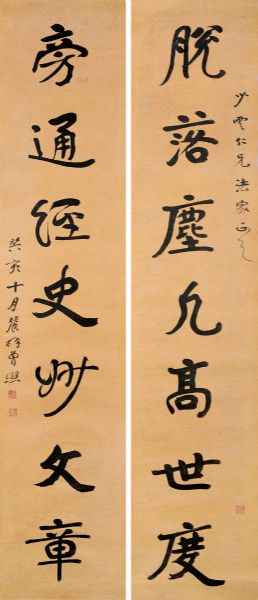 少雲仁兄法家正之
脫落塵凡高世度
旁通經史妙文章
癸亥十月農髯曾熙